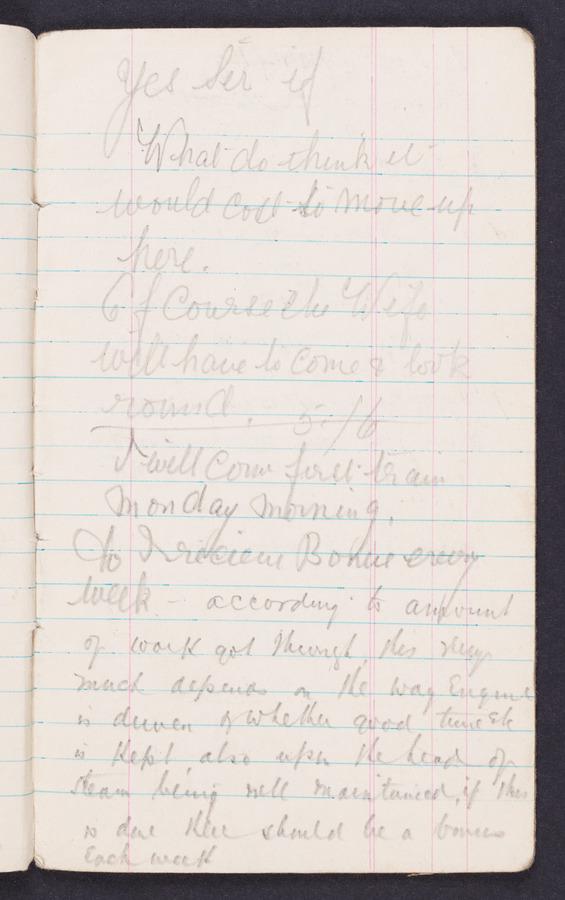 Yes Sir if
What do think it
would cost to move up
here.
Of Course the Wife
will have to come & look
round. 5/6
I will Come first train
Monday Morning.
Do I recieve Bonus every
week - according to amount
of work got through, this very
much depends on the way Engine
is driven & whether good time etc
is kept, also upon the head of
steam being well maintained, if this
is done there should be a bonus
Each week